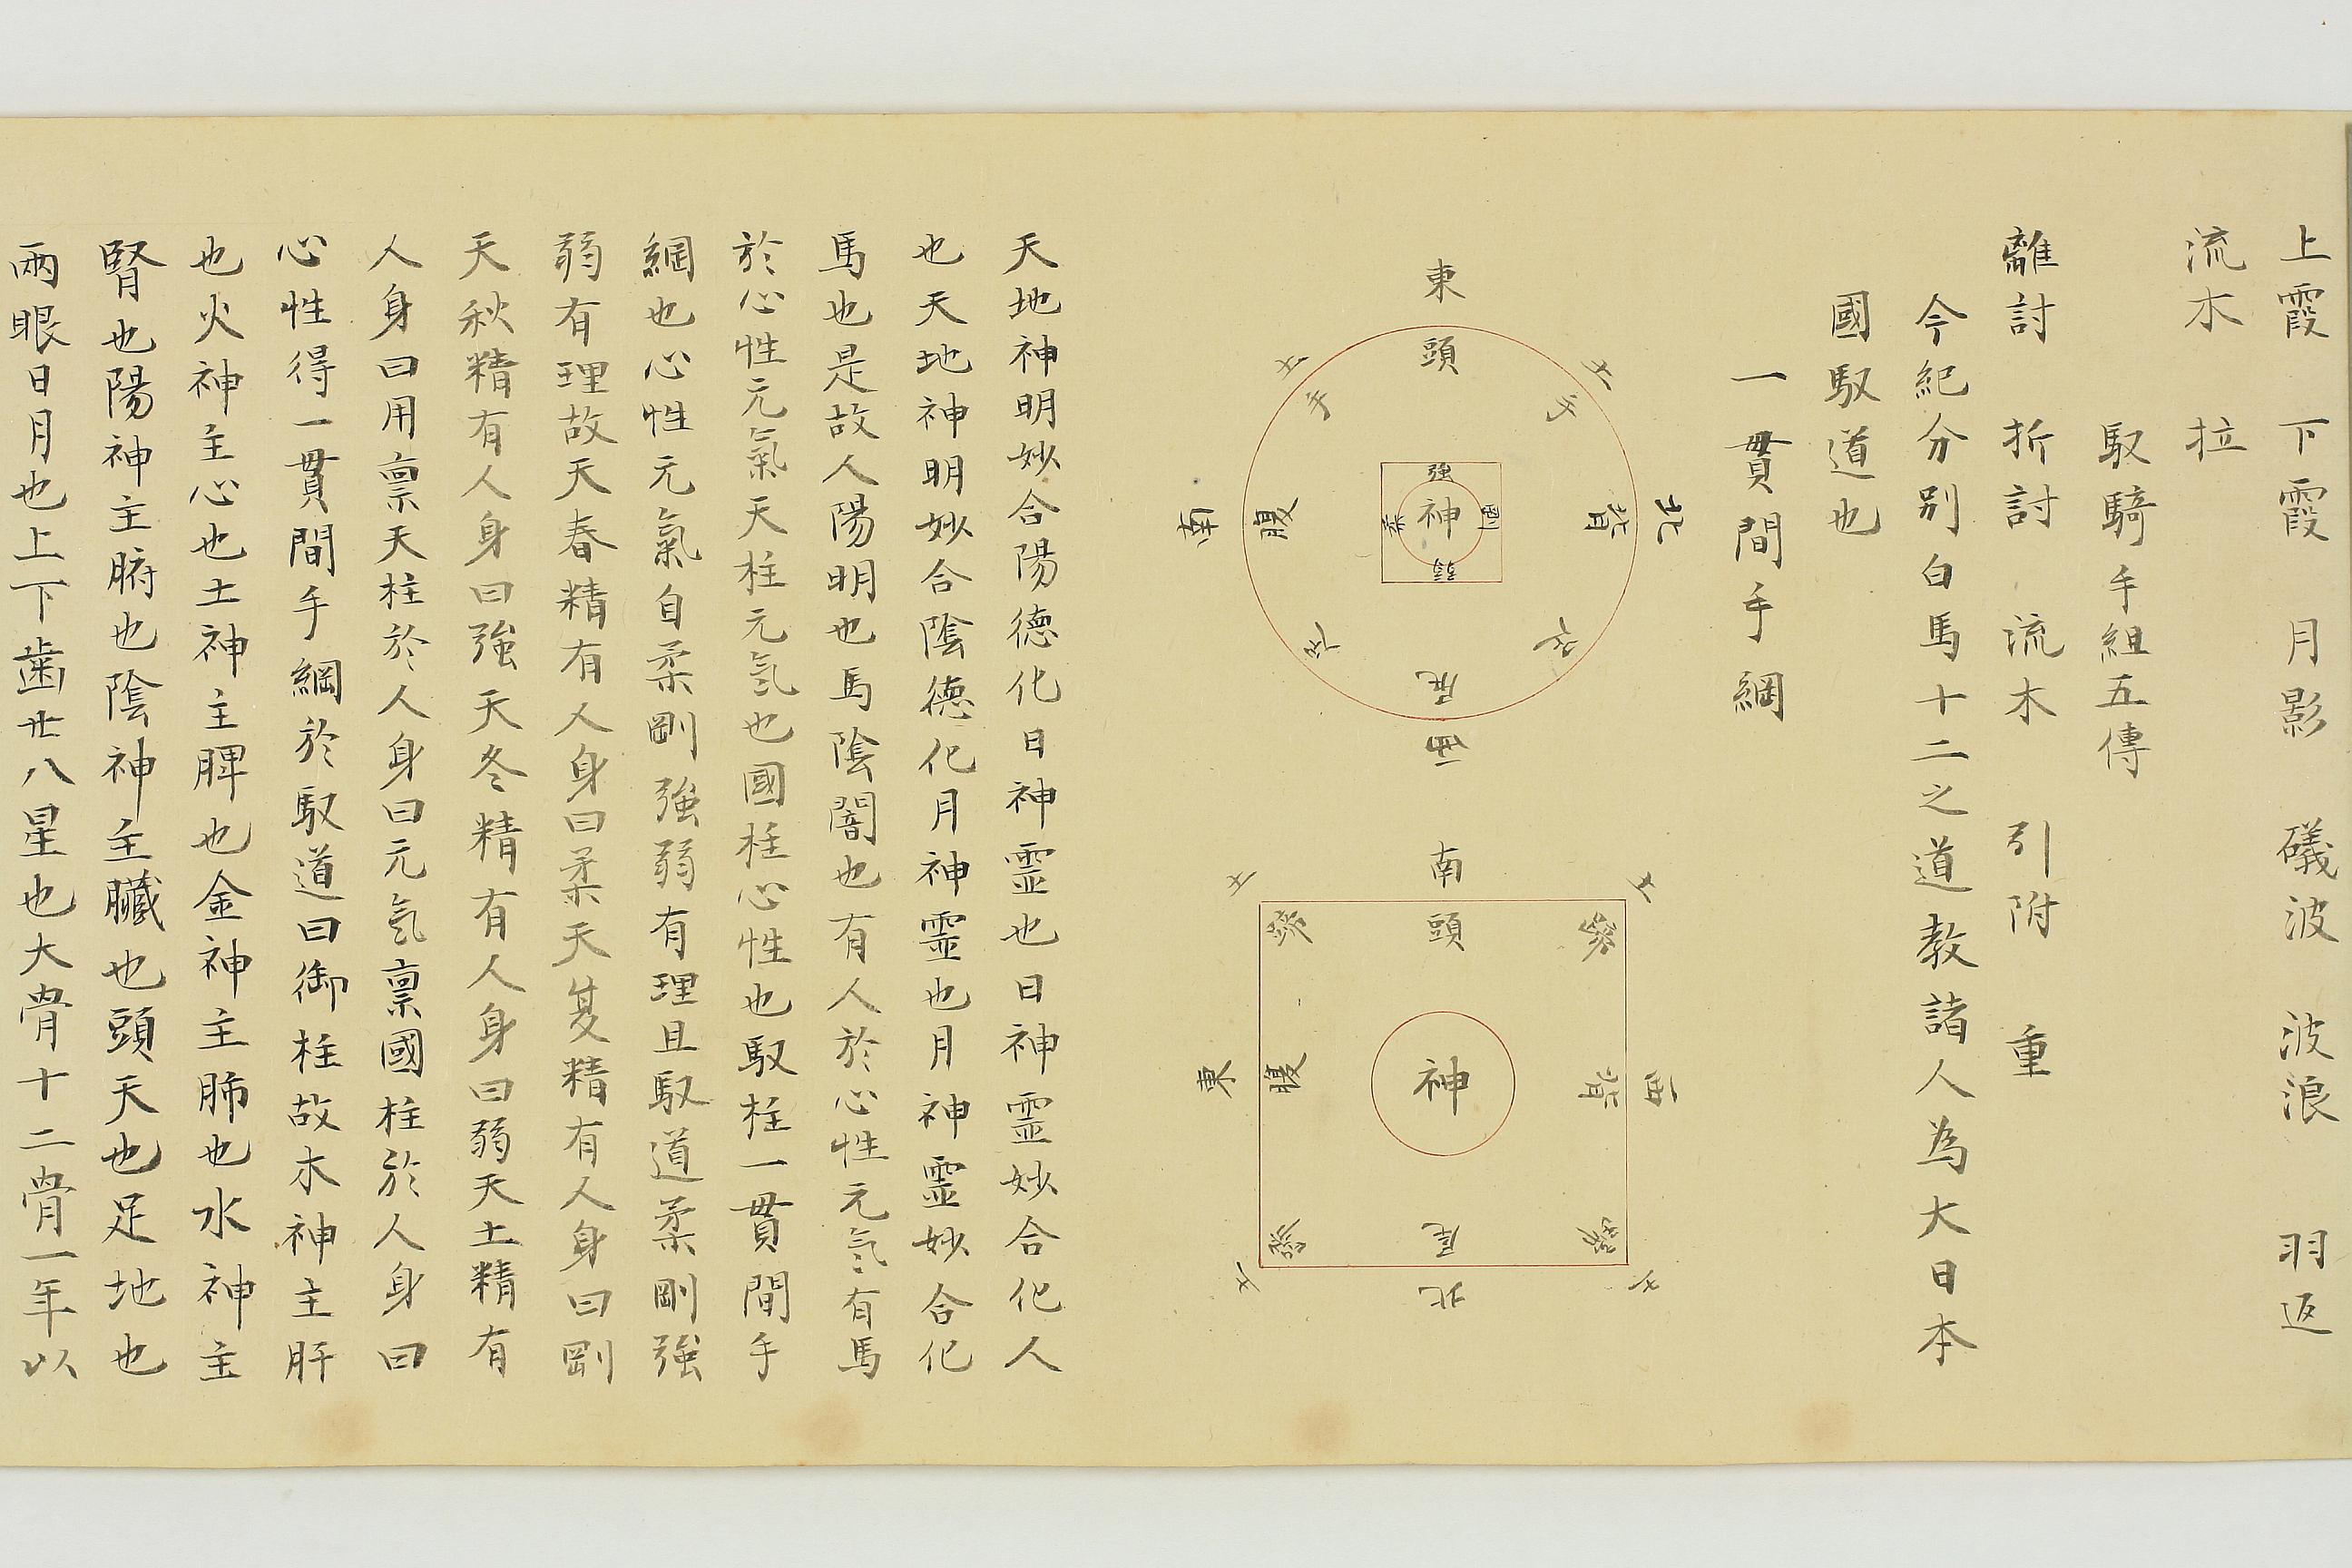 上霞　下霞　月影　礒波　波浪　羽返
流木　拉
馭騎手組五傳
離討　折討　流木　引附　重
今紀分別白馬十二之道教諸人為大日本
國馭道也
一貫間手綱
東
頭
手
手
北
背
南
腹
強
剛
神
柔
弱
尾
西
南
頭
西
背
東
腹
神
尾
北
天地神明妙合陽德化日神霊也日神霊妙合化人
也天地神明妙合陰德化月神霊也月神霊妙合化
馬也是故人陽明也馬陰闇也有人於心性元氣有馬
於心性元氣天柱元氣也國柱心性也馭柱一貫間手
綱也心性元氣自柔剛強弱有理且馭道柔剛強
弱有理故天春精有人身曰柔天夏精有人身曰剛
天秋精有人身曰強天冬精有人身曰弱天土精有
人身曰用禀天柱於人身曰元氣禀國柱於人身曰
心性得一貫間手綱於馭道曰御柱故木神主肝
也火神主心也土神主脾也金神主肺也水神主
腎也陽神主腑也陰神主臓也頭天也足地也
兩眼日月也上下歯廿八星也大骨十二骨一年以